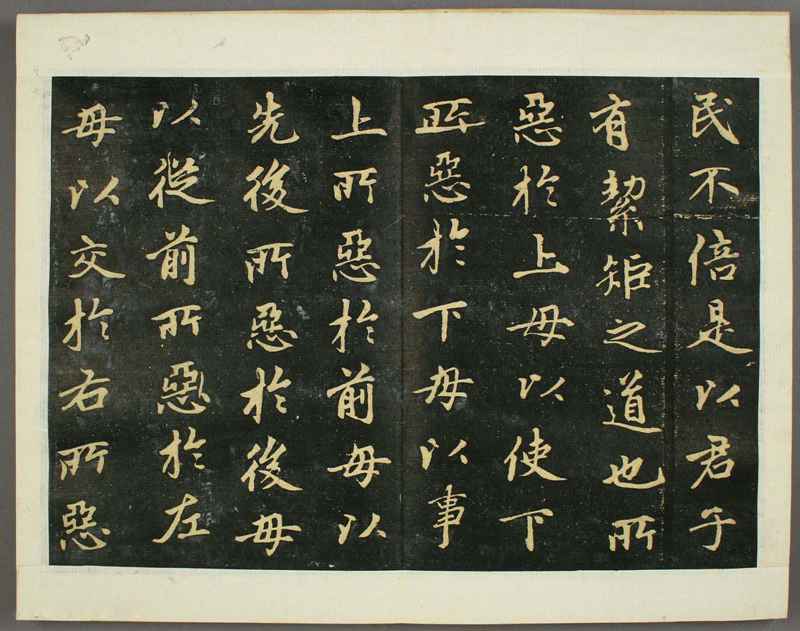 民不倍是以君子
有絜矩之道也所
惡於上毋以使下
所惡於下毋以事
上所惡於前毋以
先後所惡於後毋
以從前所惡於左
毋以交於右所惡